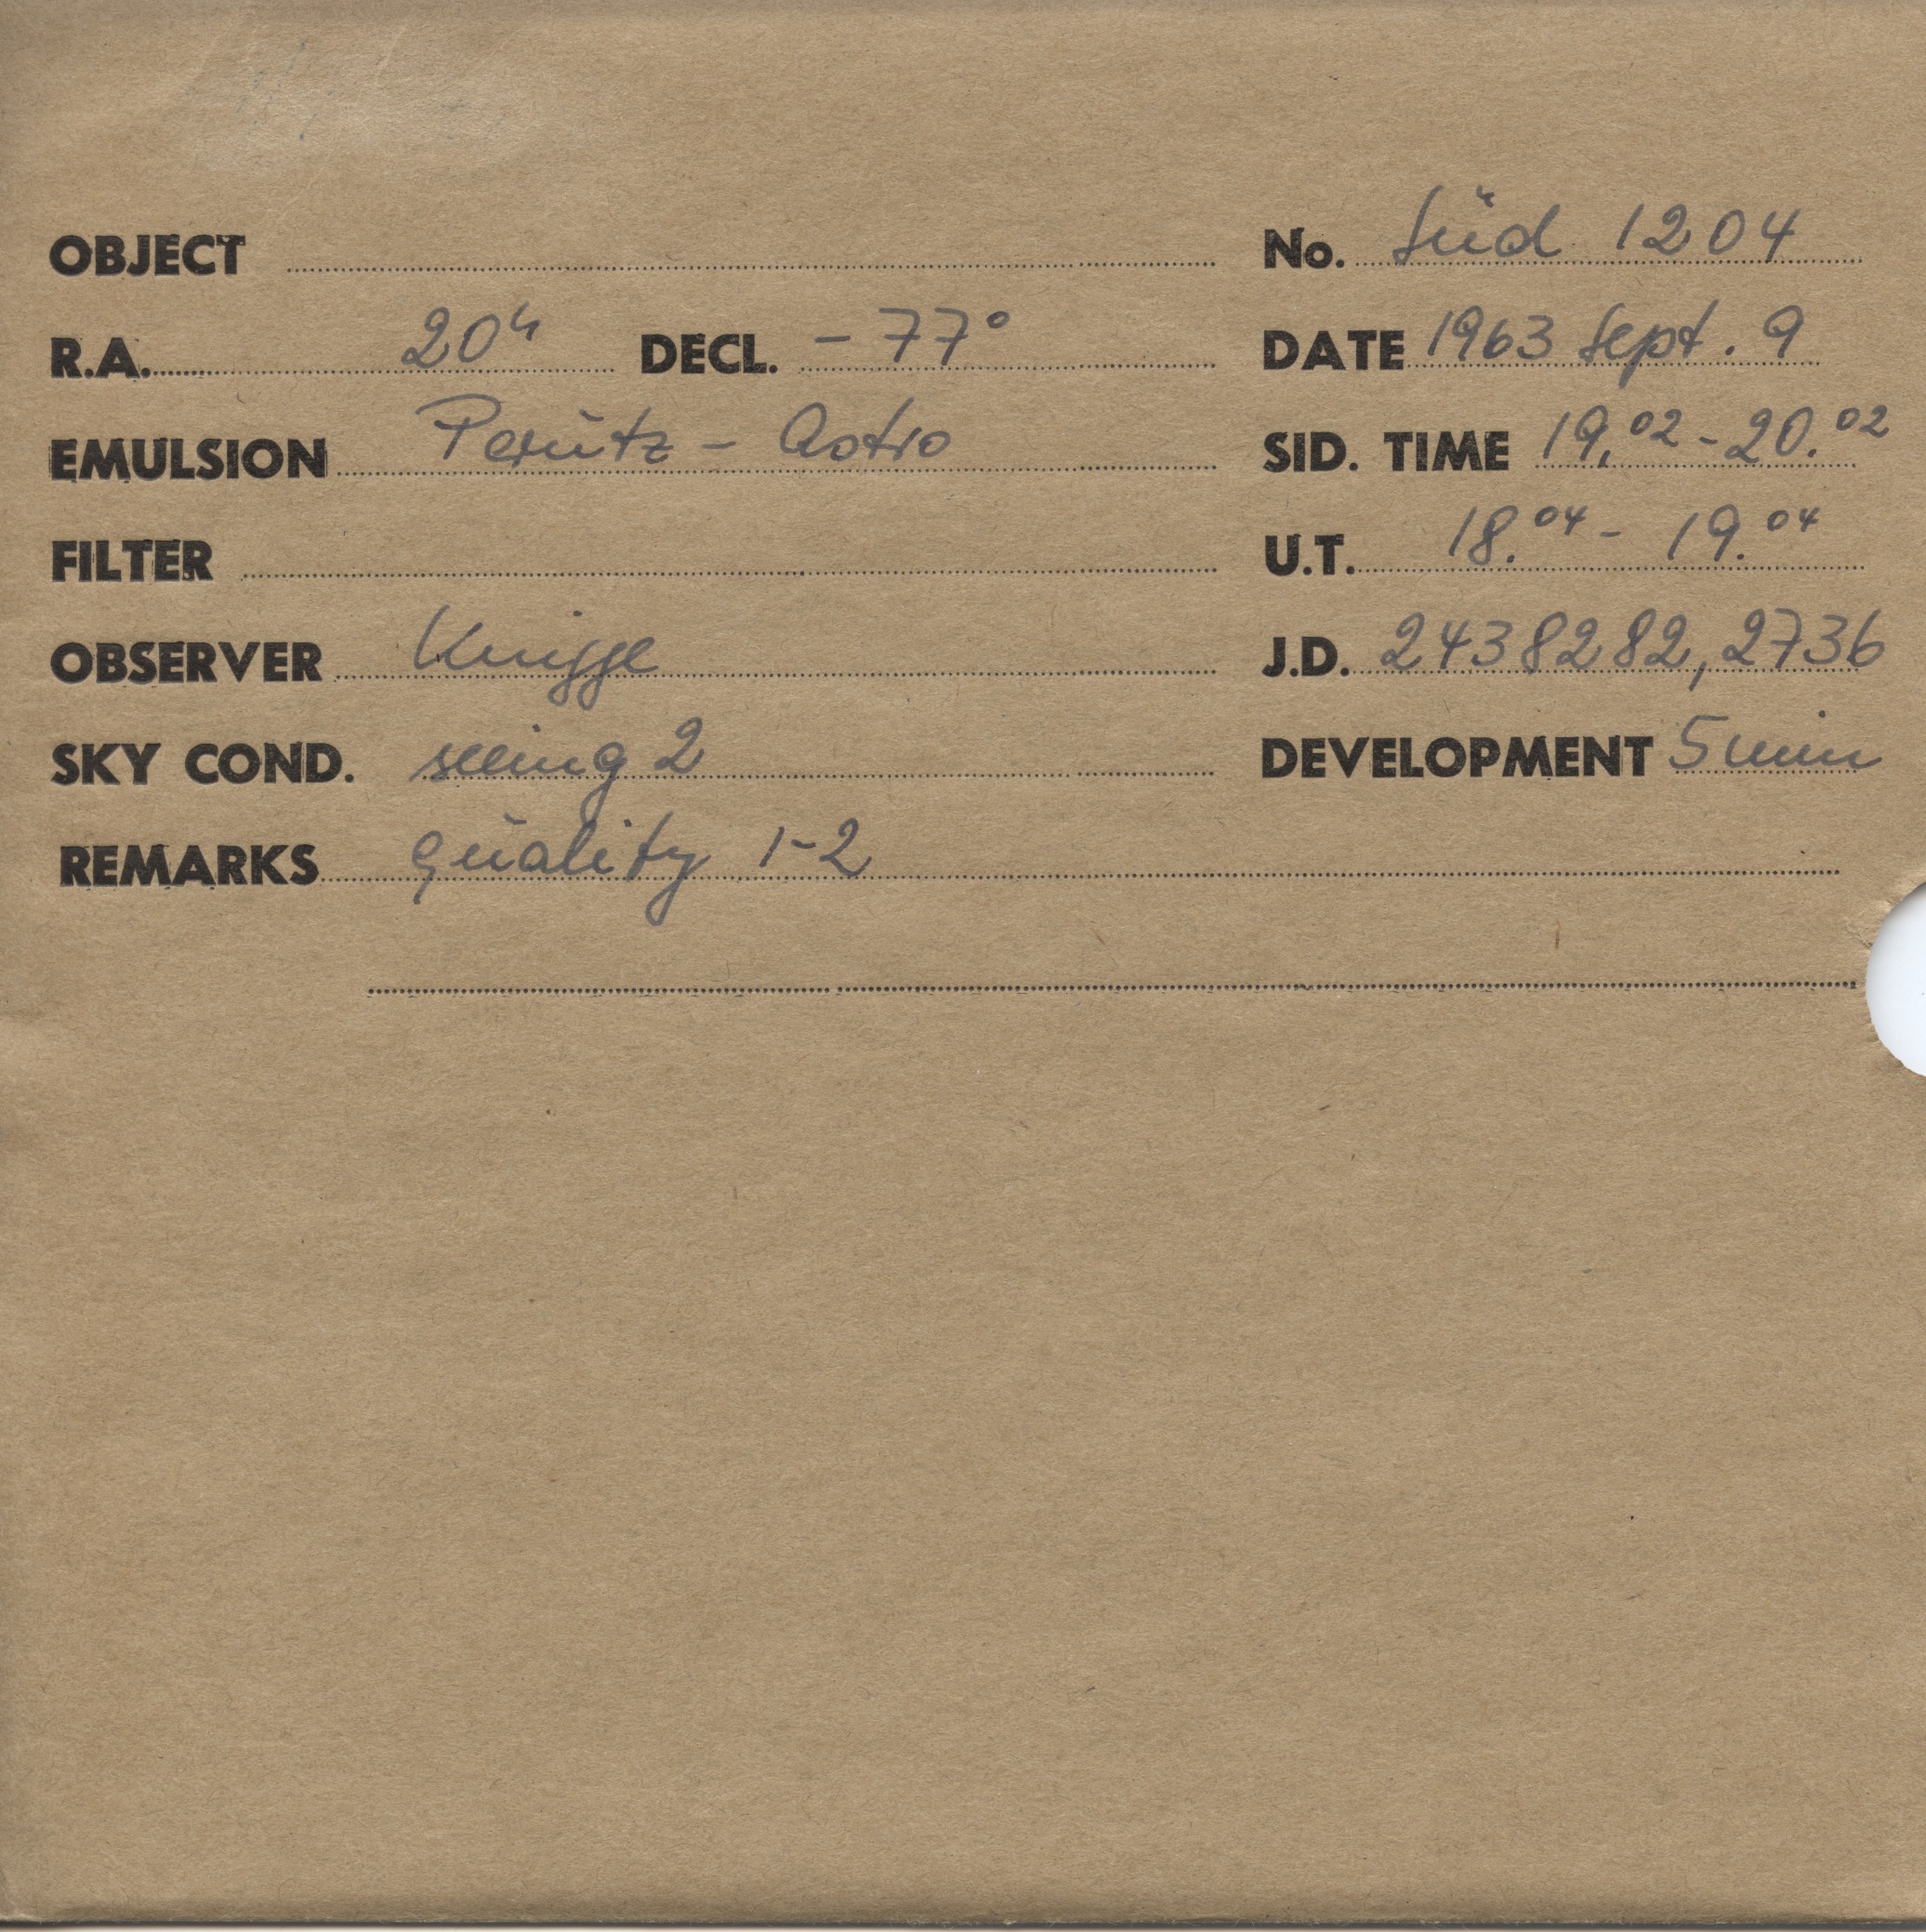 OBJECT No. Süd 1204
R.A. 20h DECL. - 77° DATE 1963 Sept. 9
EMULSION Perutz - Astro SID. TIME 19.02 - 20.02
FILTER U.T. 18.04 - 19.04
OBSERVER Knigge J.D. 2438282,2736
SKY COND. seeing 2 DEVELOPMENT 5 min
REMARKS quality 1-2